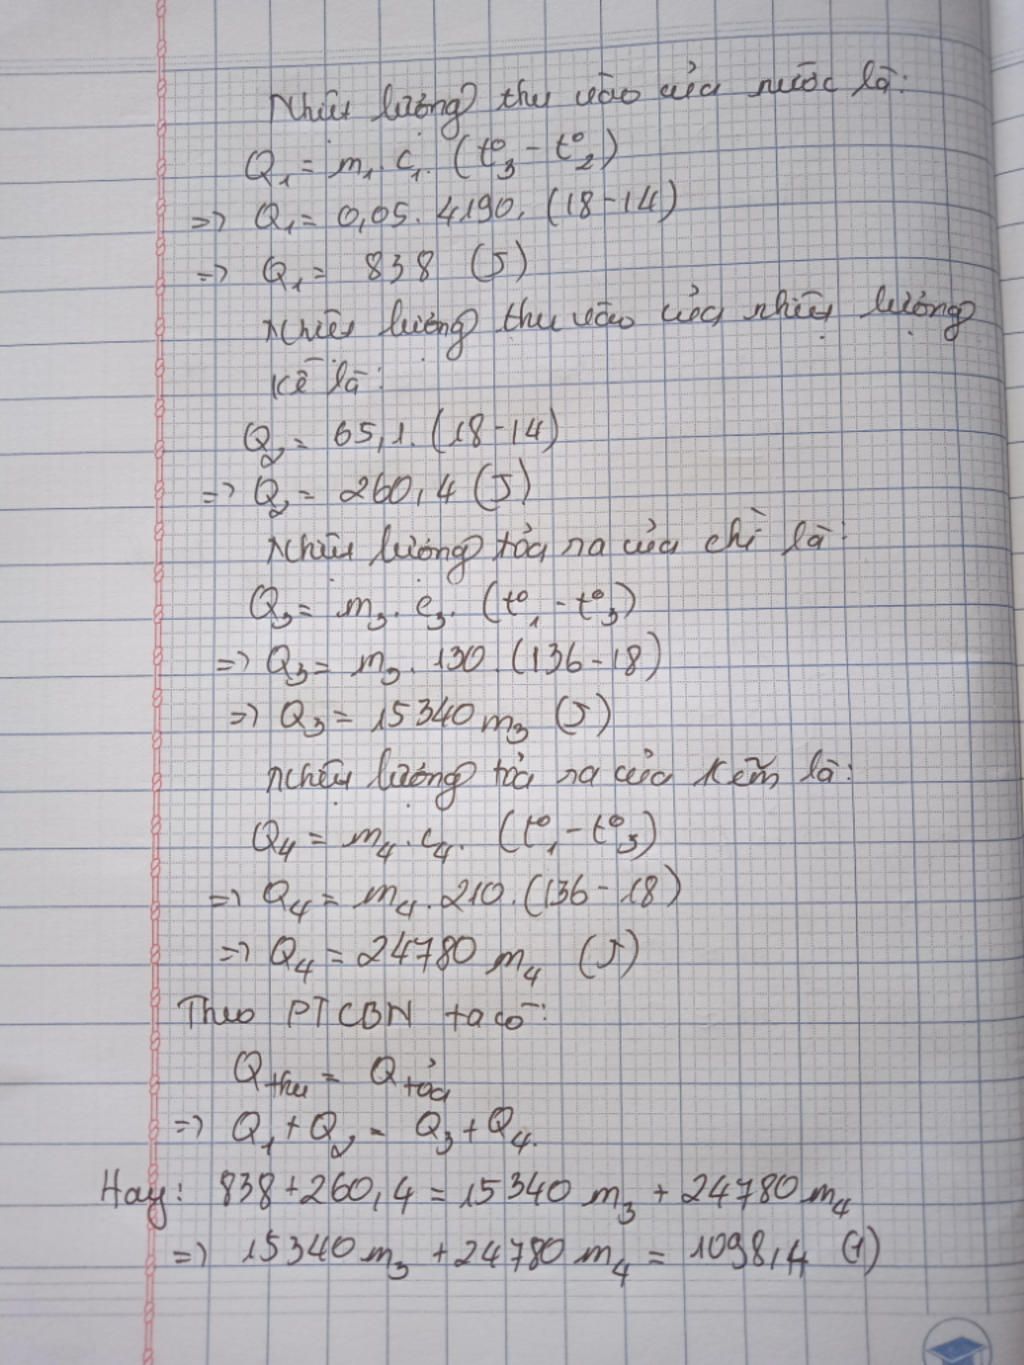 Nhiệt lượng thu vào của nước là:
Q₁ = m₁. c₁. (t°₃ - t°₂)
=> Q₁ = 0,05. 4190. (18-14)
=> Q₁ = 838 (J)
Nhiệt lượng thu vào của nhiệt lượng
kế là:
Q₂ = 65,1. (18-14)
=> Q₂ = 260,4 (J)
Nhiệt lượng tỏa ra của chì là:
Q₃ = m₃. c₃. (t°₁ - t°₃)
=> Q₃ = m₃. 130. (136-18)
=> Q₃ = 15340 m₃ (J)
Nhiệt lượng tỏa ra của kẽm là:
Q₄ = m₄. c₄. (t°₁ - t°₃)
=> Q₄ = m₄. 210. (136-18)
=> Q₄ = 24780 m₄ (J)
Theo PTCBN ta có:
Q thu = Q tỏa
=> Q₁ + Q₂ = Q₃ + Q₄.
Hay: 838+260,4 = 15340 m₃ + 24780 m₄
=> 15340 m₃ + 24780 m₄ = 1098,4 (1)